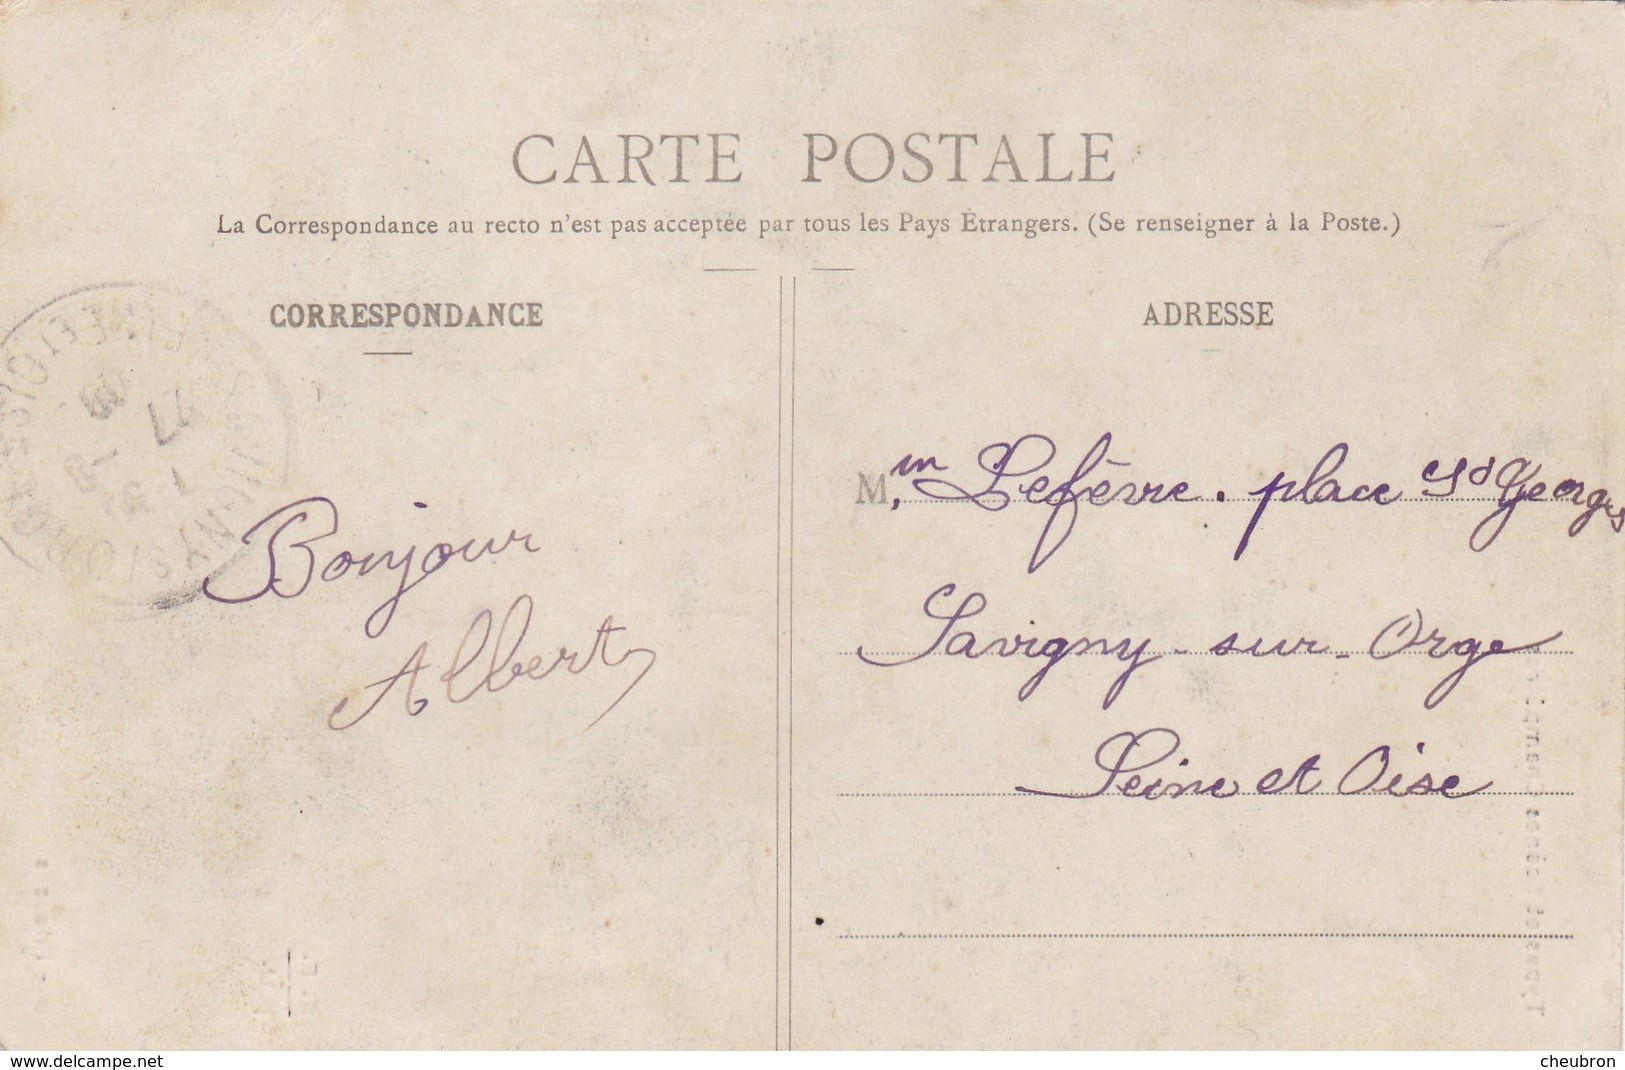 CARTE POSTALE
La Correspondance au recto n'est pas acceptée par tous les Pays Étrangers. (Se renseigner à la Poste.)
CORRESPONDANCE
ADRESSE
Bonjour
Albert
M.m Lefèvre. place St Georges
Savigny-sur-Orge
Seine et Oise
www.delcampe.net
cheubron